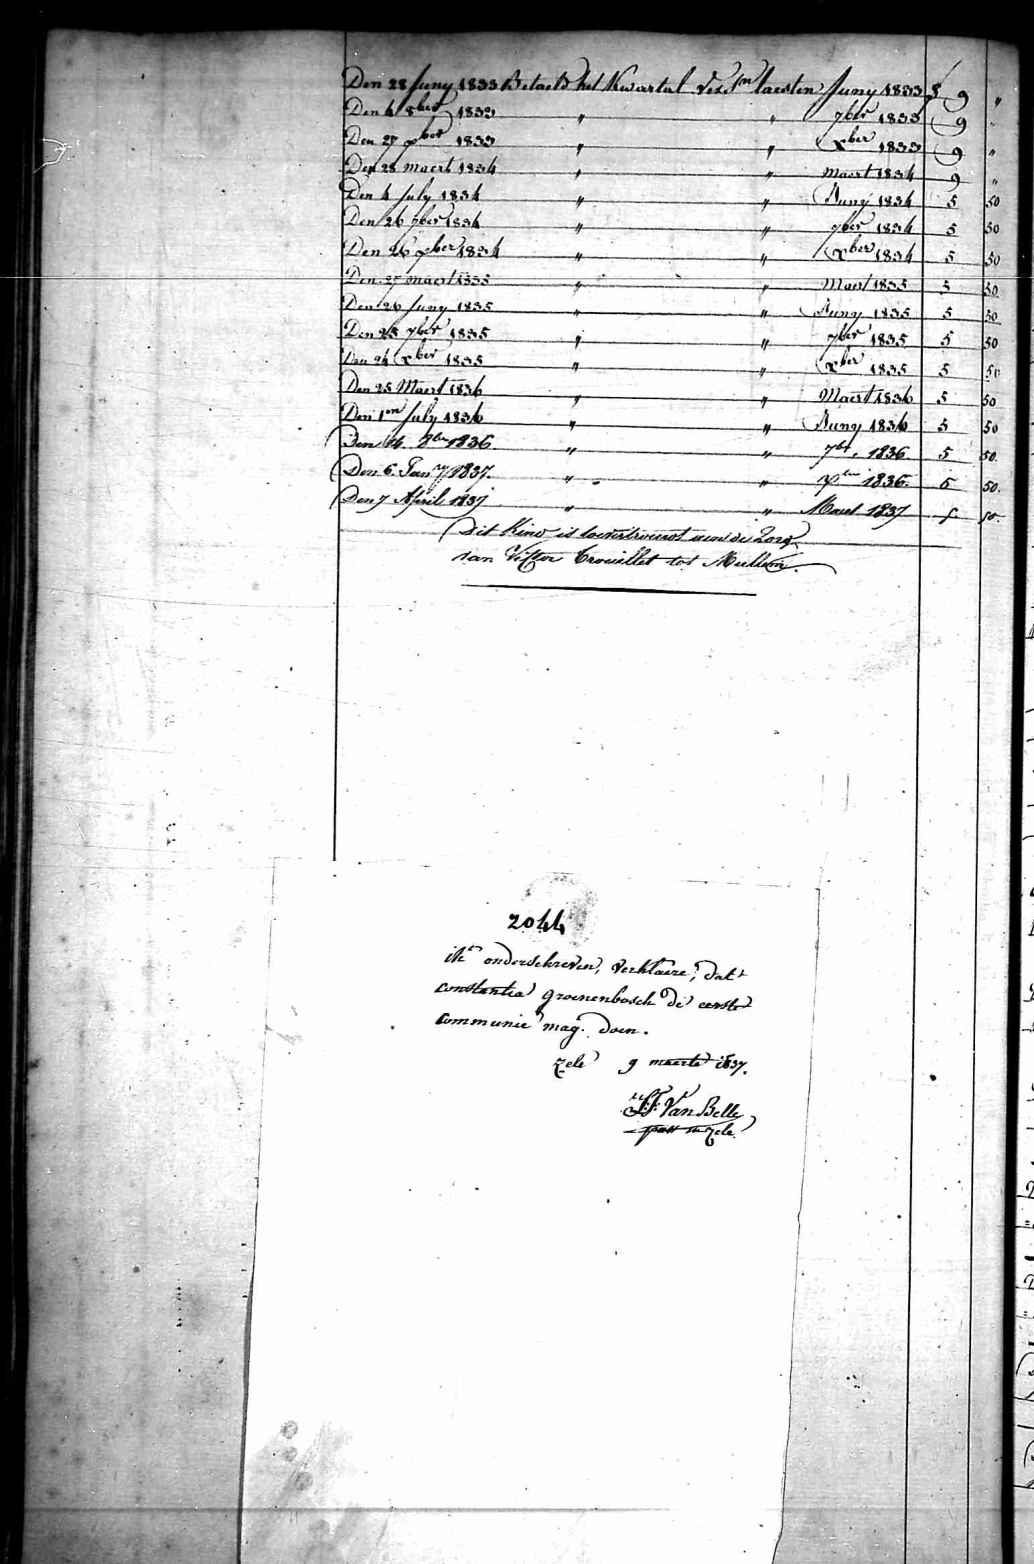 Den 28 Juny 1833 Betaeld het Kwartael laesten Juny 1833 9 "
Den 4 8ber 1833 " " 7ber 1833 9 "
Den 27 xber 1833 " " xber 1833 9 "
Den 28 maert 1834 " " Maert 1834 9 "
Den 4 July 1834 " " Juny 1834 5 50
Den 26 7ber 1834 " " 7ber 1834 5 50
Den 26 xber 1834 " " xber 1834 5 50
Den 27 maert 1835 " " Maert 1835 5 50
Den 26 Juny 1835 " " Juny 1835 5 50
Den 25 7ber 1835 " " 7ber 1835 5 50
Den 24 xber 1835 " " xber 1835 5 50
Den 25 Maert 1836 " " Maert 1836 5 50
Den 1en July 1836 " " Juny 1836 5 50
Den 14 8ber 1836 " " 7ber 1836 5 50
Den 6 Jany 1837. " " xber 1836. 5 50.
Den 7 April 1837 " " Maert 1837 5 50.
Dit Kind is toevertrouwt aen de Zorg
van Victor Crouillet tot Mullem.
2044
ik onderschreven, verklaere, dat
constantia groenenbosch de eerste
communie mag doen.
zele 9 maerte 1837.
Van Belle
past in zele